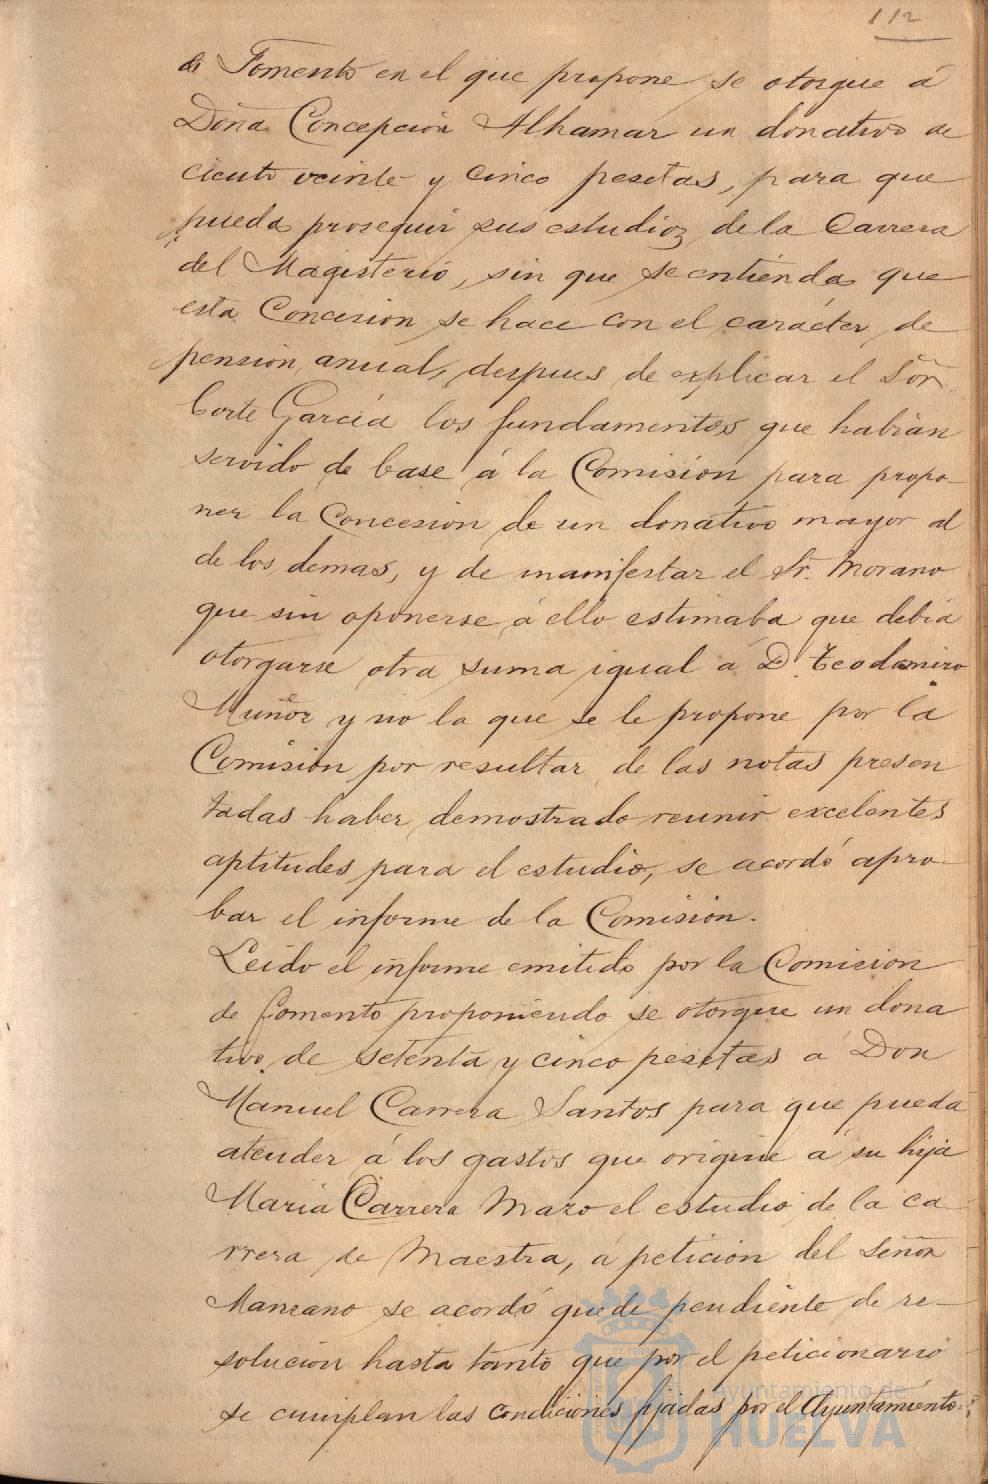 112
de Fomento en el que propone se otorgue á
Doña Concepción Alhamar un donativo de
ciento veinte y cinco pesetas, para que
pueda proseguir sus estudios de la Carrera
del Magisterio, sin que se entienda que
esta Concesion se hace con el carácter de
pensión anual, despues de explicar el Sôr.
Corte García los fundamentos que habian
servido de base á la Comisión para propo-
ner la Concesion de un donativo mayor al
de los demas, y de manifestar el Sr. Morano
que sin oponerse á ello estimaba que debia
otorgarse otra suma igual á D. Teodomiro
Muñoz y no la que se le propone por la
Comisión por resultar de las notas presen
tadas haber demostrado reunir excelentes
aptitudes para el estudio, se acordó apro-
bar el informe de la Comisión.
Leido el informe emitido por la Comision
de fomento proponiendo se otorgue un dona
tivo de setenta y cinco pesetas á Don
Manuel Carrera Santos para que pueda
atender á los gastos que origine á su hija
María Carrera Mazo el estudio de la ca-
rrera de Maestra, á petición del Señor
Manzano se acordó quede pendiente de re-
solución hasta tanto que por el peticionario
se cumplan las condiciones fijadas por el Ayuntamiento.
Ayuntamiento de
HUELVA